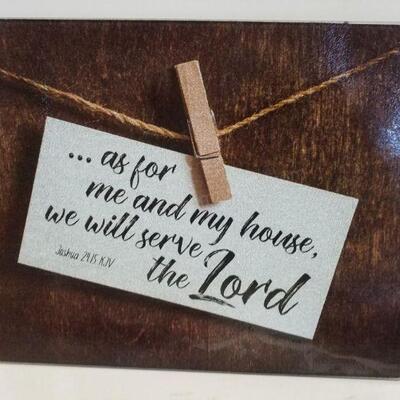 ... as for
me and my house,
we will serve
the Lord
Joshua 24:15 KJV